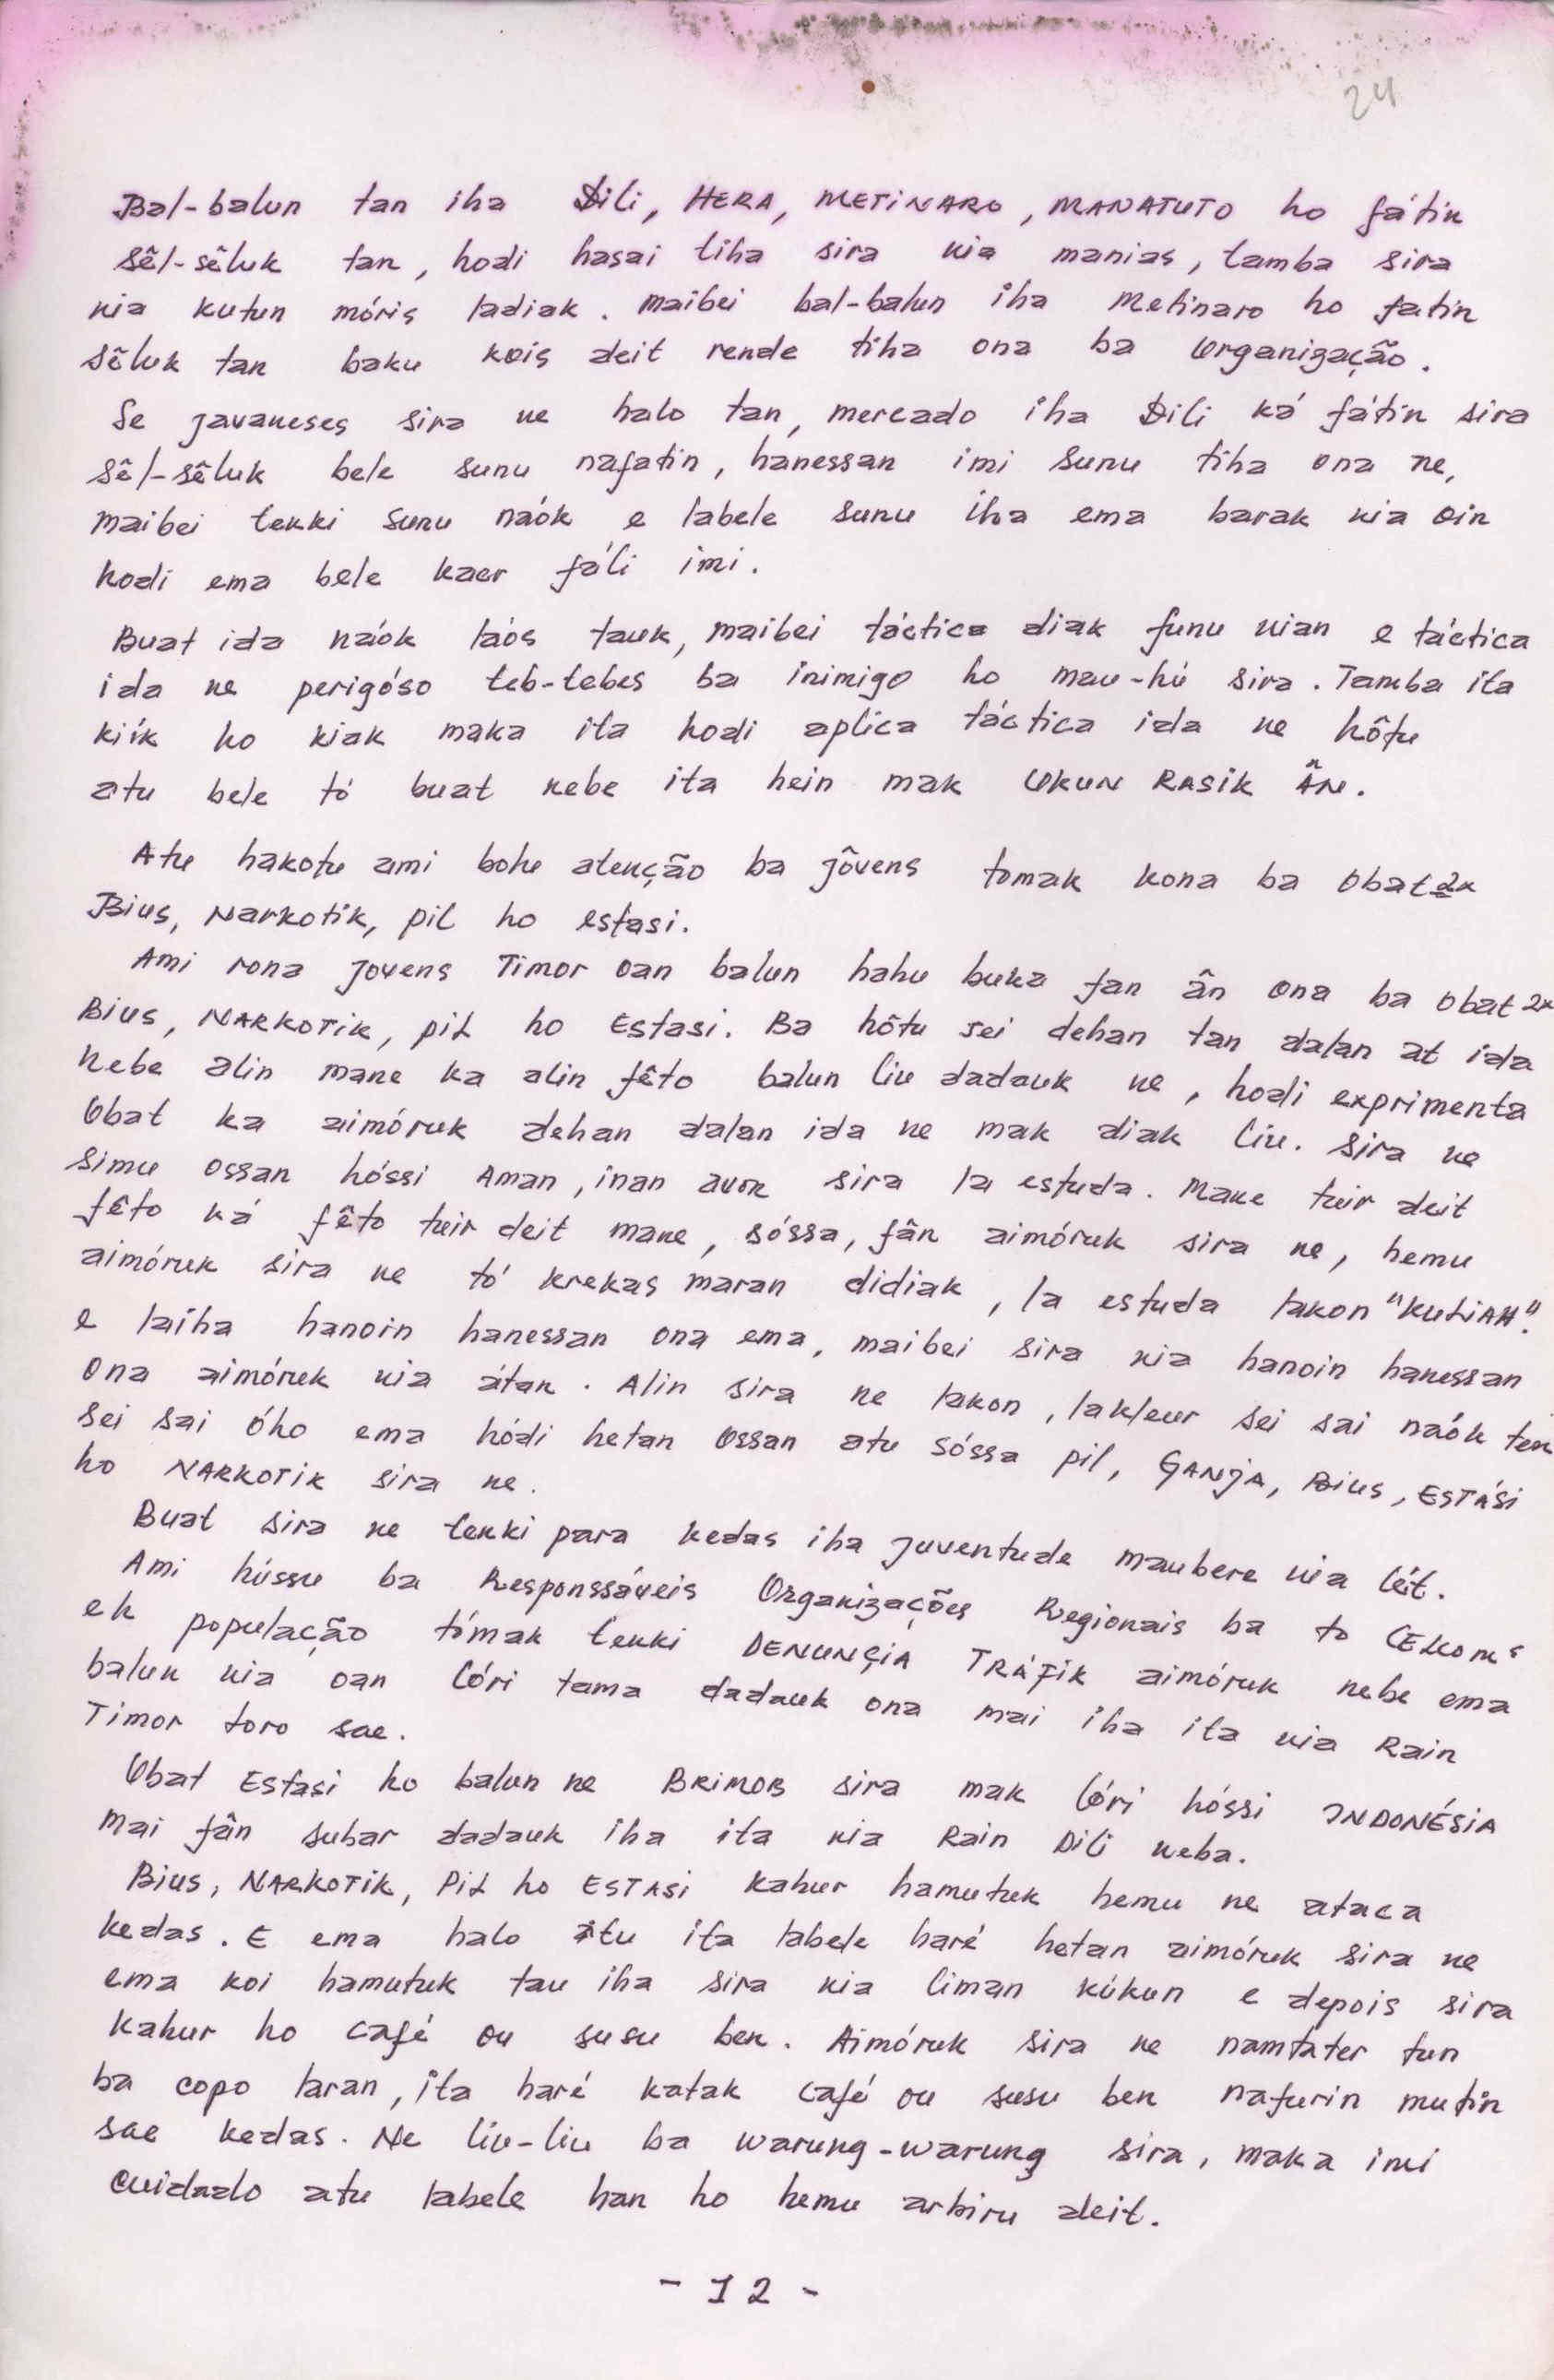 24
Bal-balun tan iha Dili, HERA, METINARO, MANATUTO ho fátin
sêl-sêluk tan, hodi hasai tiha sira nia manias, tamba sira
nia kutun móris ladiak. Maibei bal-balun iha Metinaro ho fatin
sêluk tan baku kois deit rende tiha ona ba Organização.
Se javaneses sira ne halo tan, mercado iha Dili ká fátin sira
sêl-sêluk bele sunu nafatin, hanessan imi sunu tiha ona ne,
maibei tenki sunu naók e labele sunu iha ema barak nia oin
hodi ema bele kaer fáli imi.
Buat ida naók laós tauk, maibei táctica diak funu nian e táctica
ida ne perigóso teb-tebes ba inimigo ho mau-hú sira. Tamba ita
kiík ho kiak maka ita hodi aplica táctica ida ne hôtu
atu bele tó buat nebe ita hein mak UKUN RASIK ÂN.
Atu hakotu ami bohu atenção ba jôvens tomak kona ba Obat2x
Bius, Narkotik, pil ho estasi.
Ami rona jovens Timor oan balun hahu buka fan ân ona ba Obat2x
Bius, NARKOTIK, PIL ho Estasi. Ba hôtu sei dehan tan dalan at ida
nebe alin mane ka alin fêto balun liu dadauk ne, hodi exprimenta
Obat ka aimóruk dehan dalan ida ne mak diak liu. Sira ne
simu ossan hóssi Aman, inan avon sira la estuda. Mane tuir deit
fêto ká fêto tuir deit mane, sóssa, fân aimóruk sira ne, hemu
aimóruk sira ne tó krekas maran didiak, la estuda lakon "KULIAH".
e laiha hanoin hanessan ona ema, maibei sira nia hanoin hanessan
ona aimóruk nia átan. Alin sira ne lakon, lakleur sei sai naók ten
sei sai óho ema hódi hetan Ossan atu sóssa pil, GANJA, Bius, ESTÁSI
ho NARKOTIK sira ne.
Buat sira ne tenki para kedas iha juventude maubere nia leit.
Ami hússu ba Responssáveis Organizações Regionais ba to CELKOMs
ek população tómak tenki DENUNSIA TRÁFIK aimóruk nebe ema
balun nia oan lóri tama dadauk ona mai iha ita nia Rain
Timor loro sae.
Obat Estasi ho balun ne BRIMOB sira mak lóri hóssi INDONÉSIA
mai fân subar dadauk iha ita nia Rain Dili neba.
Bius, NARKOTIK, PIL ho ESTASI kahur hamutuk hemu ne ataca
kedas. E ema halo atu ita labele haré hetan aimóruk sira ne
ema koi hamutuk tau iha sira nia liman kúkun e depois sira
kahur ho café ou susu ben. Aimóruk sira ne namtater tun
ba copo laran, ita haré katak café ou susu ben nafurin mutin
sae kedas. Ne liu-liu ba warung-warung sira, maka imi
cuidado atu labele han ho hemu arbiru deit.
- 12 -